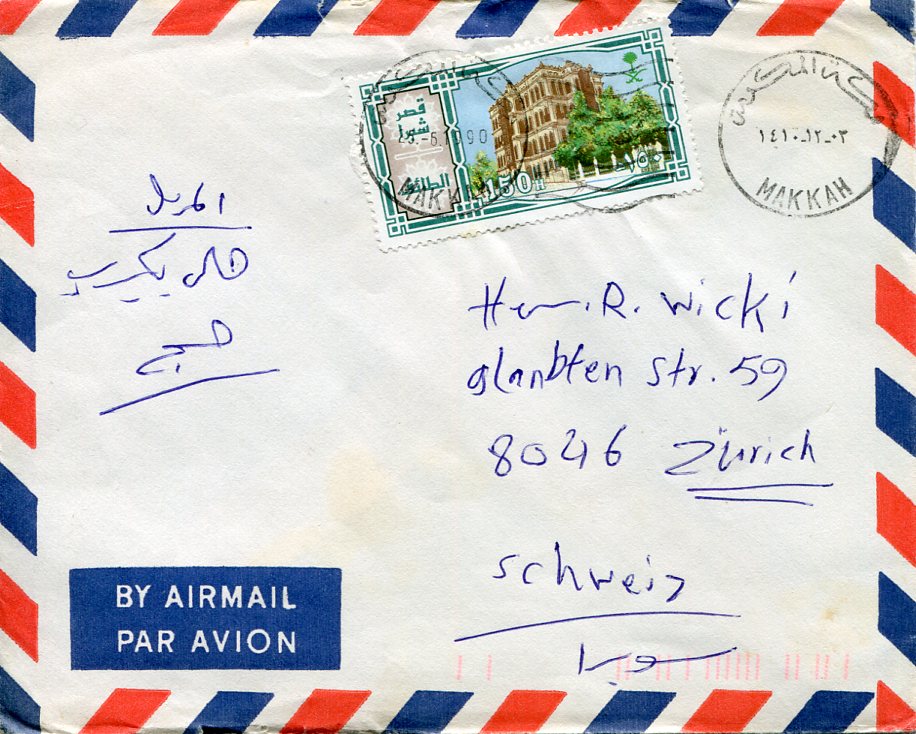 قصر
شبرا
الطائف
150 H
١٥٠
-6.1990
MAKKAH
مكة المكرمة
١٤١٠-١٢-٠٣
MAKKAH
حج
Herrn. R. Wicki
glanbten str. 59
8046 Zürich
Schweiz
سويسرا
BY AIRMAIL
PAR AVION